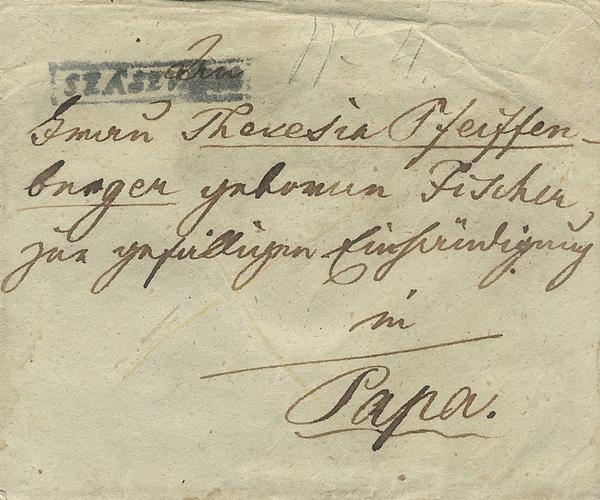 An
Frau Theresia Pfeiffen-
berger geborene Fischer,
zur gefälligen Einhändigung
in
Papa.